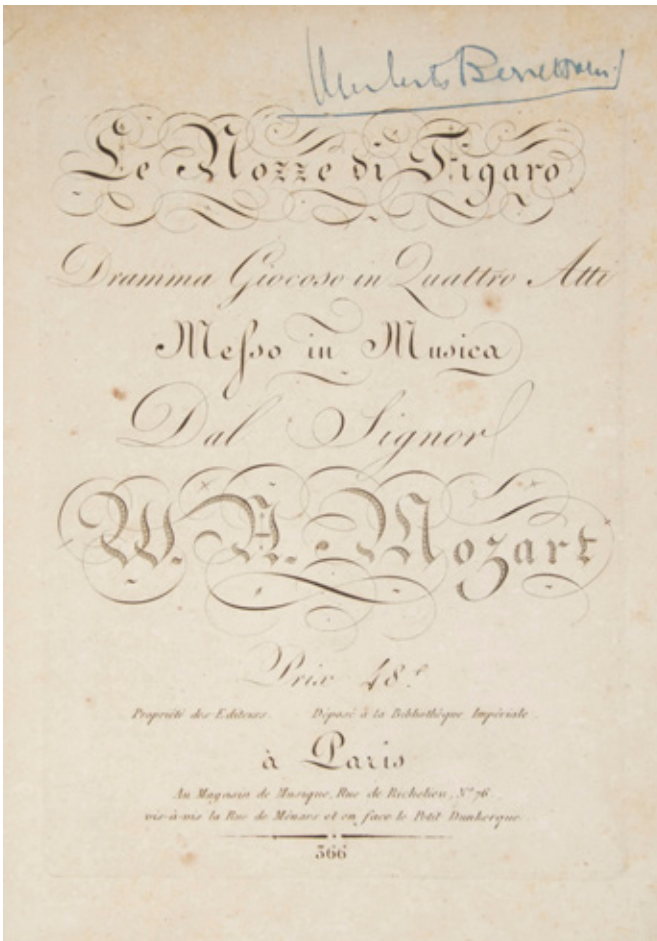 Umberto Berrettoni
Le Nozze di Figaro
Dramma Giocoso in Quattro Atti
Meſso in Musica
Dal Signor
W. A. Mozart
Prix 48.f
Propriété des Editeurs. Déposé à la Bibliothèque Impériale.
à Paris
Au Magasin de Musique, Rue de Richelieu, N.º 76.
vis-à-vis la Rue de Ménars et en face le Petit Dunkerque.
366